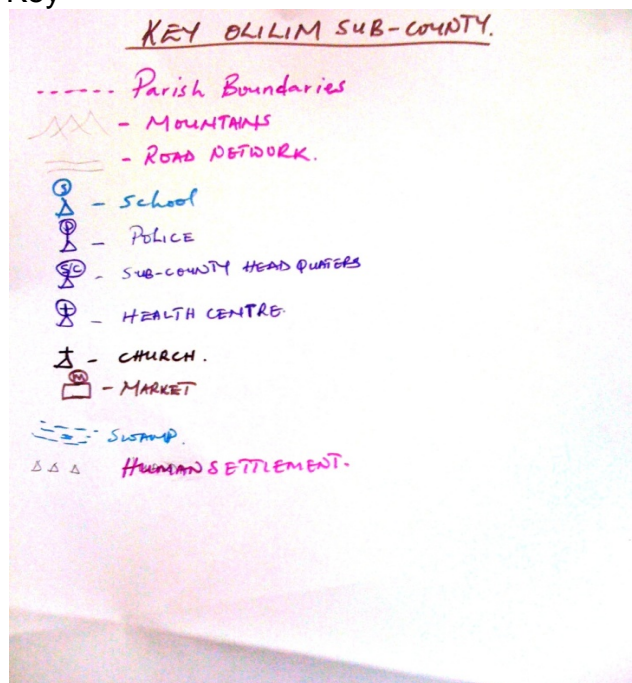 Key
KEY OLILIM SUB-COUNTY.
Parish Boundaries
- MOUNTAINS
- ROAD NETWORK.
S - School
P - POLICE
S/C - SUB-COUNTY HEAD QUATERS
- HEALTH CENTRE.
- CHURCH.
M - MARKET
SWAMP.
HUMAN SETTLEMENT.